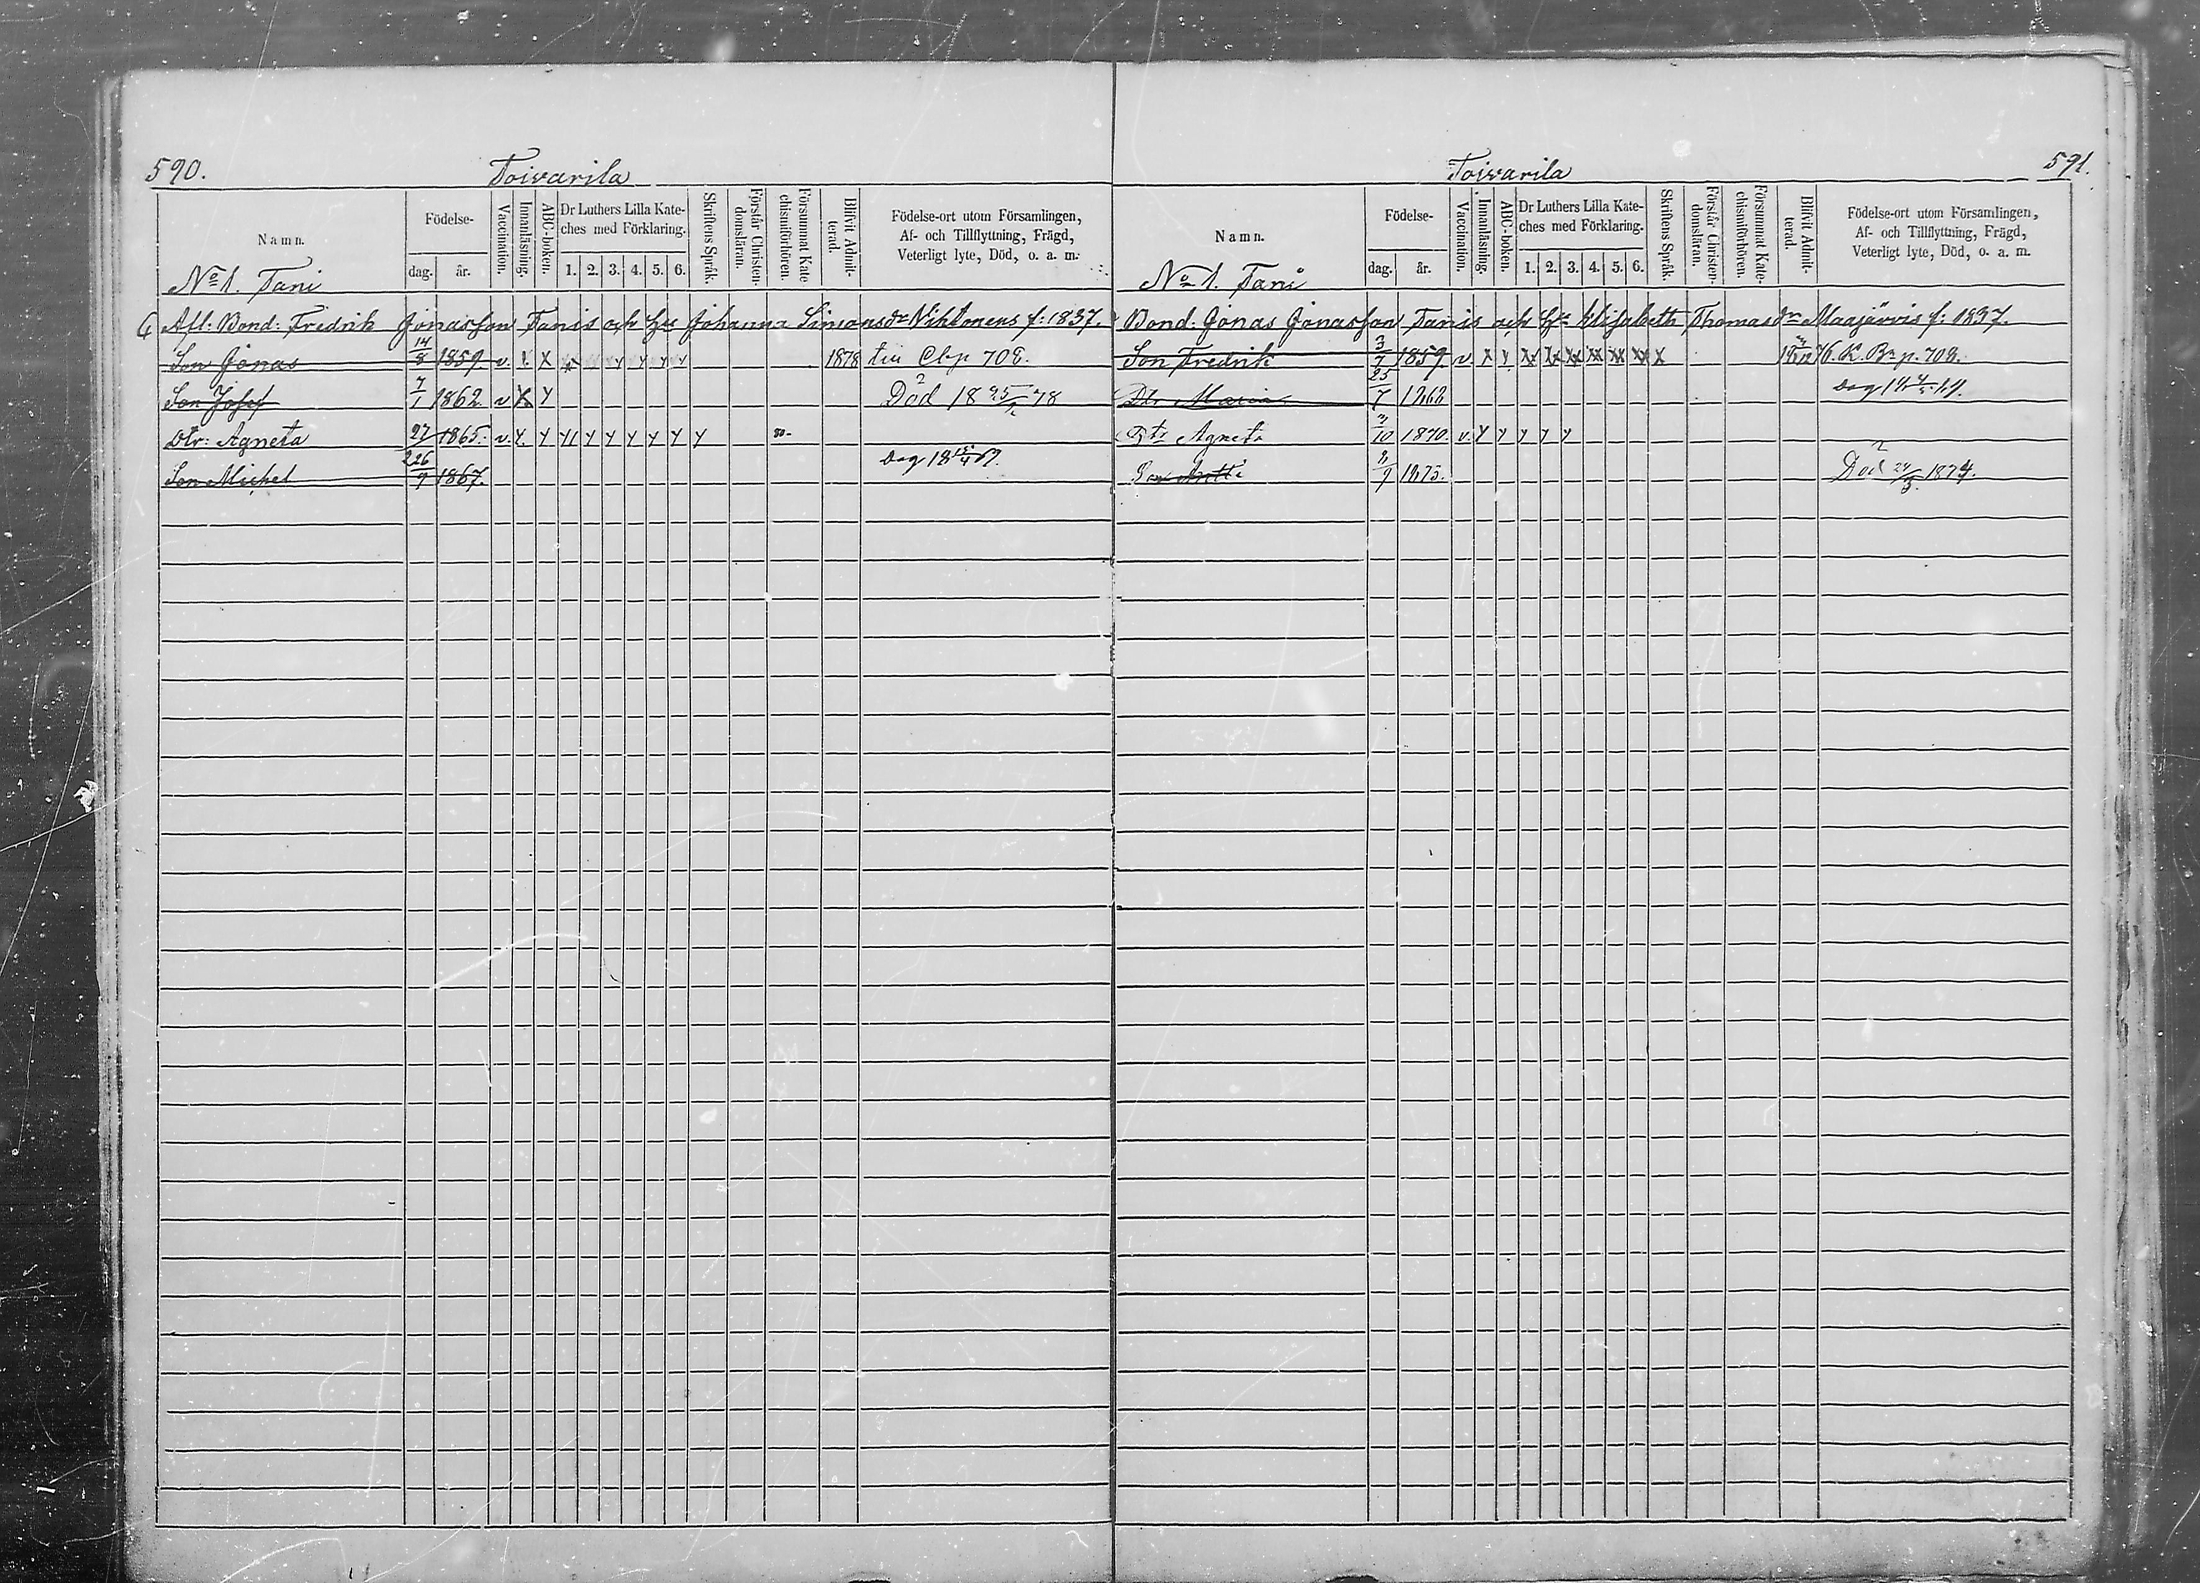 590.
Toivarila
Namn.
Födelse-
dag.
år.
Vaccination.
Innanläsning.
ABC-boken.
Dr Luthers Lilla Kate-
ches med Förklaring.
1. 2. 3. 4. 5. 6.
Skriftens Språk.
Förstår Christen-
domsläran.
Försummat Kate
chismiförhören.
Blifvit Admit-
terad.
Födelse-ort utom Församlingen,
Af- och Tillflyttning, Frägd,
Veterligt lyte, Död, o. a. m.
No 1. Tani
Afl: Bond: Fredrik Jonasson Tanis och Johanna Simonsdr Vihtonens f: 1837.
Son Jonas 14/8 1859. v. X X 1878 Cbp 708.
Son Josef 7/1 1862. v X Y Död 18 78
Dtr: Agneta 27 1865. v. Y. Y Y Y Y Y Y Y Y 80-
Son Michel 26/9 1867.
591.
Toivarila
Namn.
Födelse-
dag.
år.
Vaccination.
Innanläsning.
ABC-boken.
Dr Luthers Lilla Kate-
ches med Förklaring.
1. 2. 3. 4. 5. 6.
Skriftens Språk.
Förstår Christen-
domsläran.
Försummat Kate-
chismiförhören.
Blifvit Admit-
terad.
Födelse-ort utom Församlingen,
Af- och Tillflyttning, Frägd,
Veterligt lyte, Död, o. a. m.
No 1. Tani
Bond: Jonas Jonasson Tanis och Elisabeth Thomasdr Maajärvis f: 1837.
Son Fredrik 3/7 1859. v. X Y p. 708.
Dtr Maria 25/7 1868
Dtr Agneta /10 1870. v. Y Y Y Y Y
Son Antti /9 1873. Död 1874.